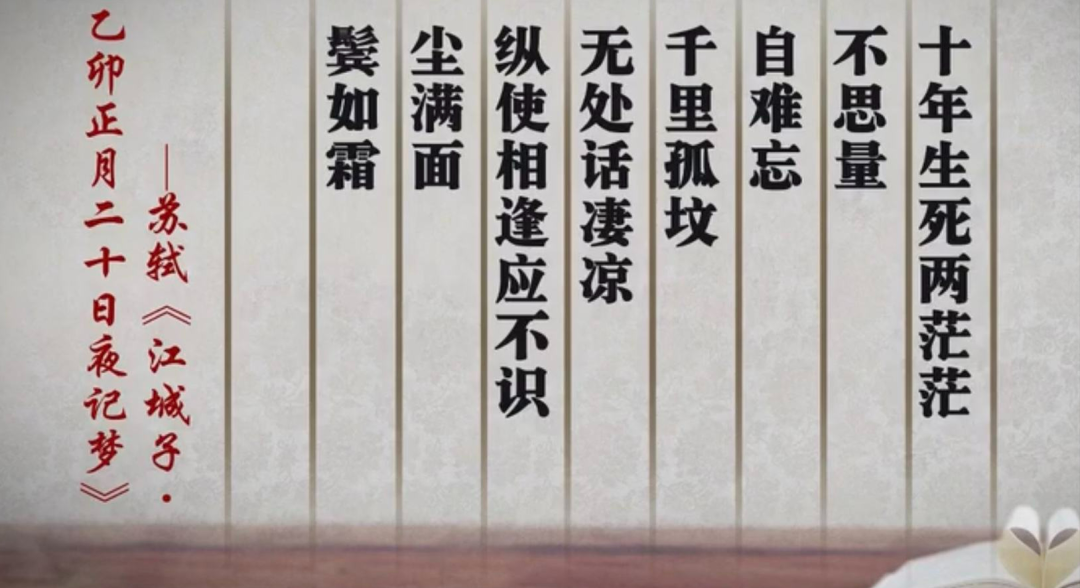 十年生死两茫茫
不思量
自难忘
千里孤坟
无处话凄凉
纵使相逢应不识
尘满面
鬓如霜
—苏轼《江城子·
乙卯正月二十日夜记梦》